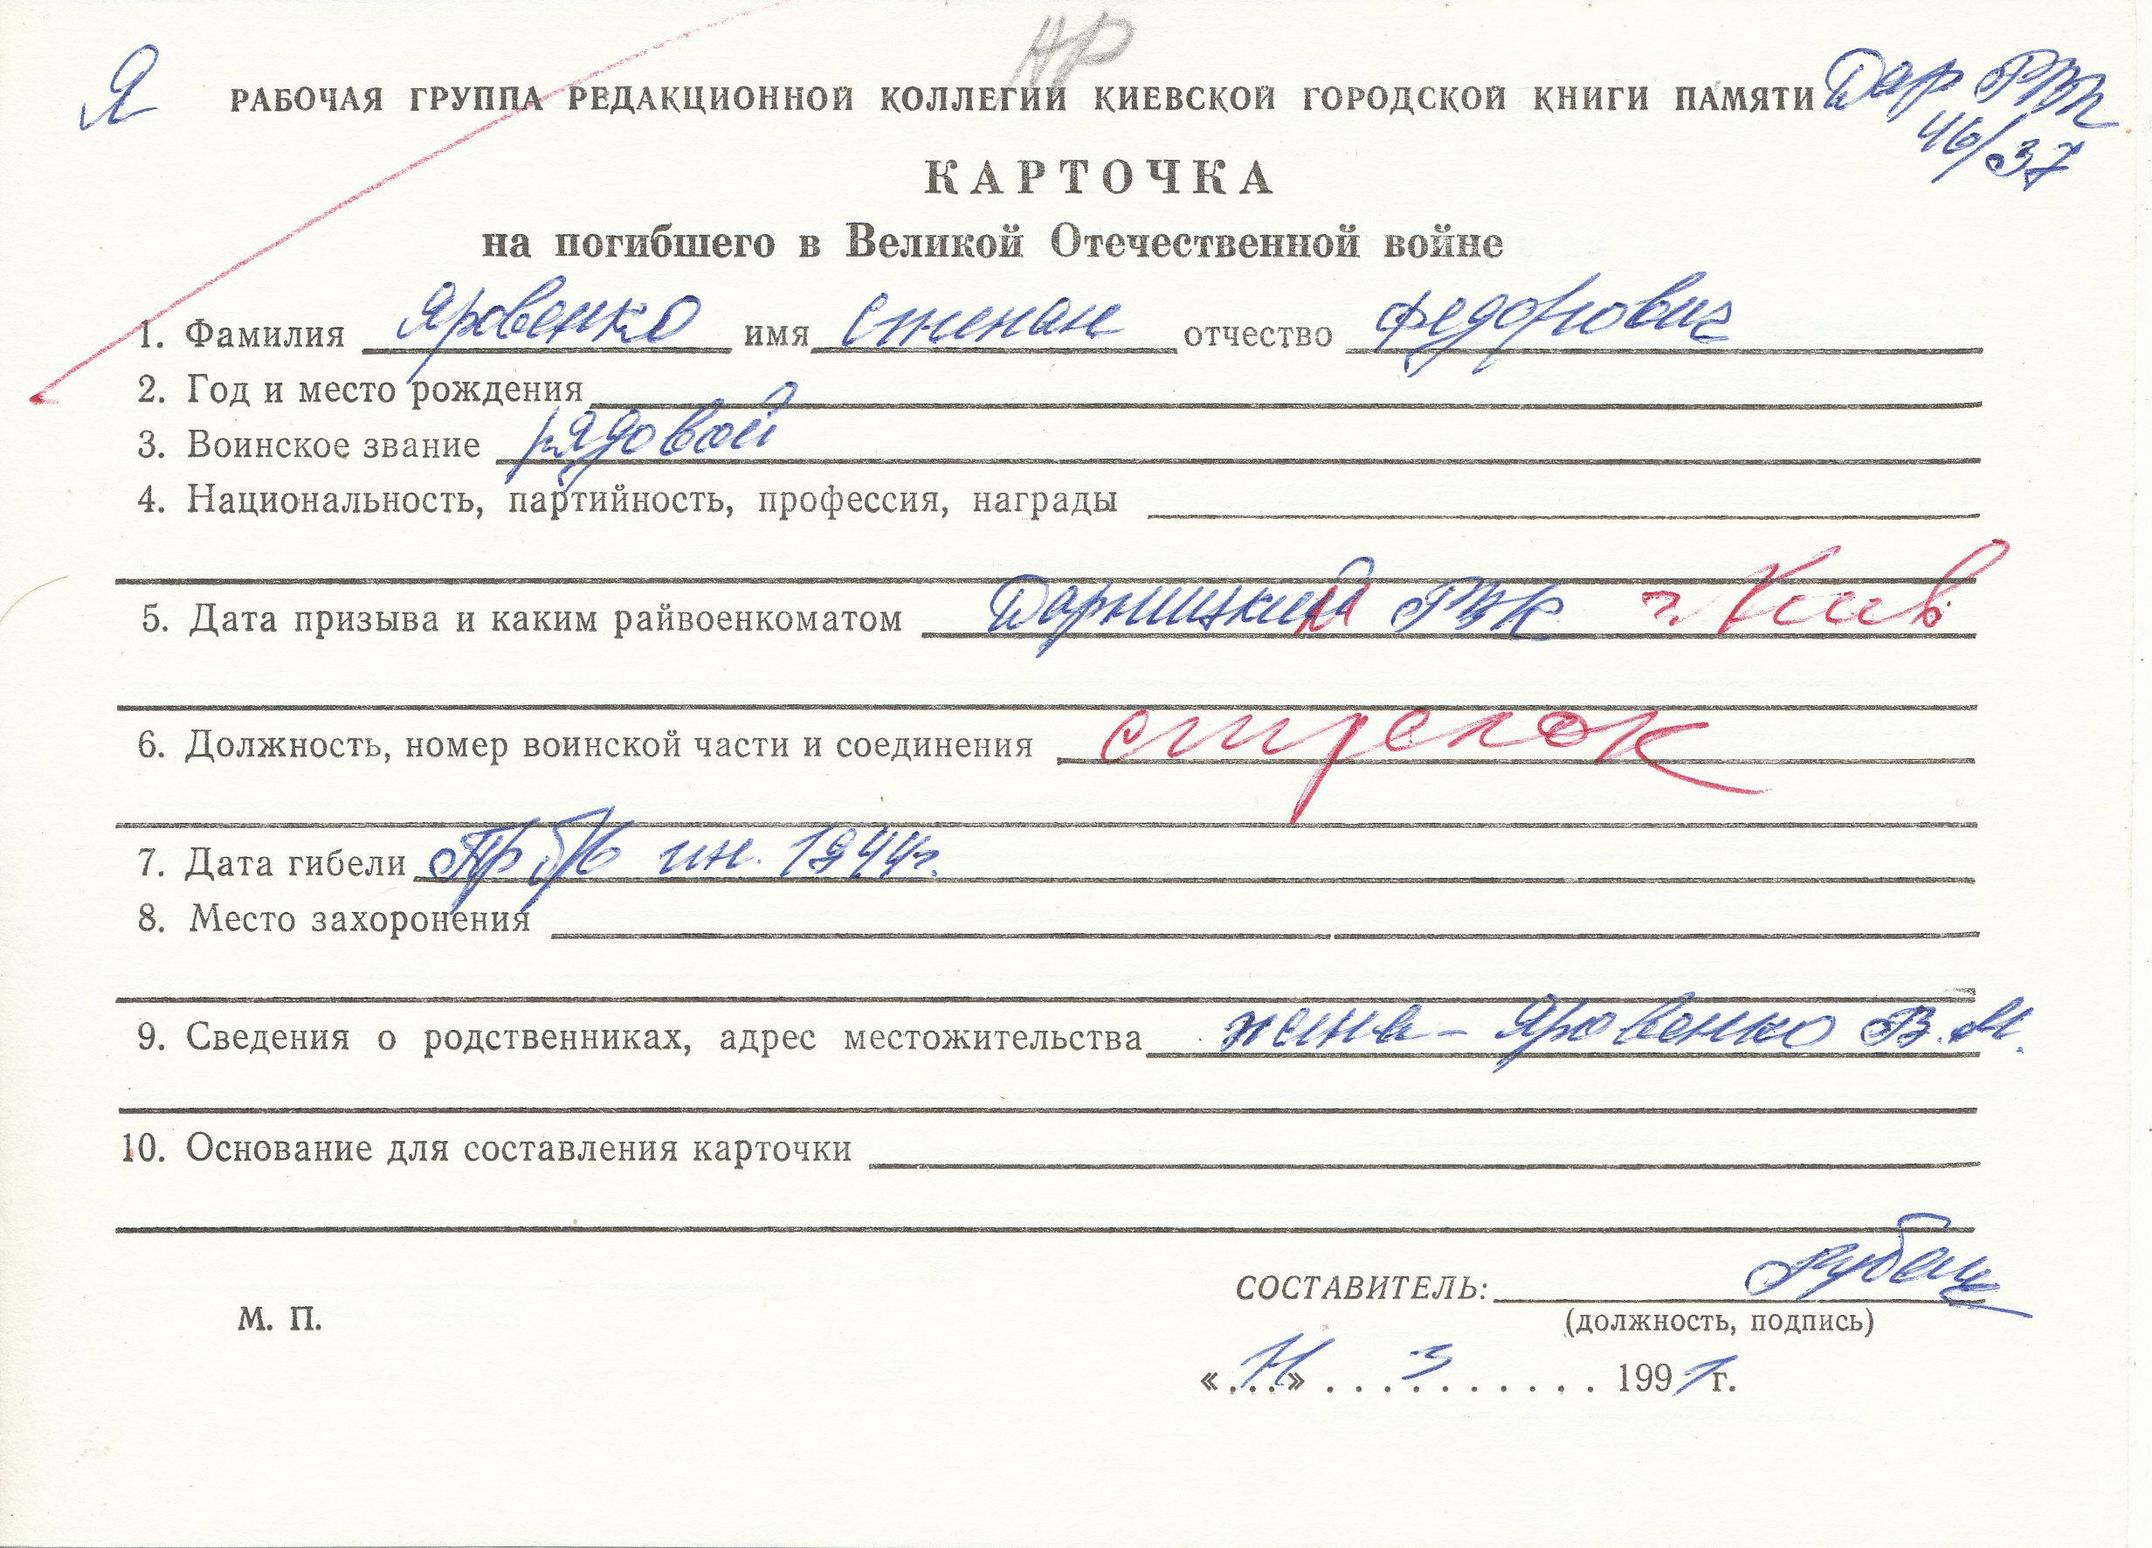 Я НР
РАБОЧАЯ ГРУППА РЕДАКЦИОННОЙ КОЛЛЕГИИ КИЕВСКОЙ ГОРОДСКОЙ КНИГИ ПАМЯТИ Дар РВК
46/37
КАРТОЧКА
на погибшего в Великой Отечественной войне
1. Фамилия Яровенко имя Степан отчество Федорович
2. Год и место рождения
3. Воинское звание рядовой
4. Национальность, партийность, профессия, награды
5. Дата призыва и каким райвоенкоматом Дарницкий РВК г. Киев
6. Должность, номер воинской части и соединения стрелок
7. Дата гибели Пр б/в ин. 1944г.
8. Место захоронения
9. Сведения о родственниках, адрес местожительства жена - Яровенко В.М.
10. Основание для составления карточки
СОСТАВИТЕЛЬ:
М. П.
(должность, подпись)
«...» 3 1991 г.